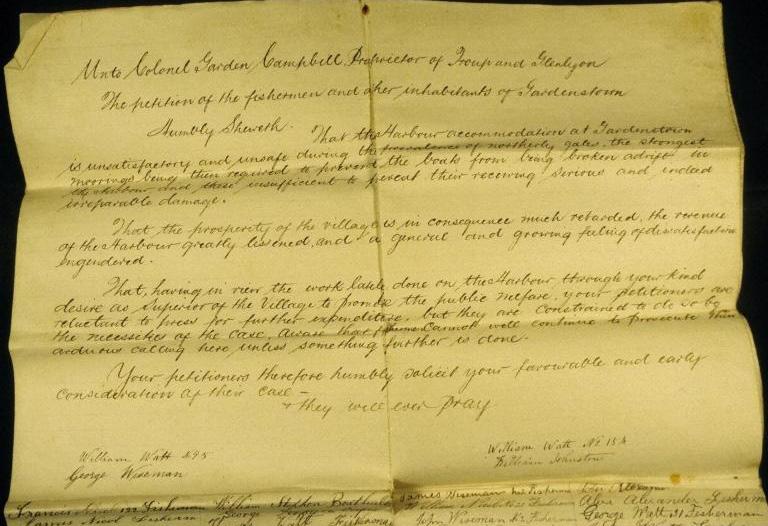 Unto Colonel Garden Campbell Proprietor of Troup and Glenlyon
The petition of the fishermen and other inhabitants of Gardenstown
Humbly Sheweth. That the Harbour accommodation at Gardenstown
is unsatisfactory and unsafe during the prevalence of northerly gales, the strongest
moorings being then required to prevent the boats from being broken adrift in
the harbour and these insufficient to prevent their receiving serious and indeed
irreparable damage.
That the prosperity of the village is in consequence much retarded, the revenue
of the Harbour greatly lessened, and a general and growing feeling of dissatisfaction
engendered.
That, having in view the work lately done on the Harbour through your kind
desire as Superior of the Village to promote the public welfare, your petitioners are
reluctant to press for further expenditure, but they are constrained to do so by
the necessities of the case. Aware that cannot well continue to prosecute their
arduous calling here unless something further is done.
Your petitioners therefore humbly solicit your favourable and early
consideration of their case –
& they will ever pray
William Watt 495
George Wiseman
William Watt No 154
William Johnston
Francis Nicol 122 Fisherman William Stephen Boatbuilder James Wiseman Fisherman
James Nicol Fisherman George John Wiseman Fisherman
Alexander Fisherman
George Watt 31 Fisherman